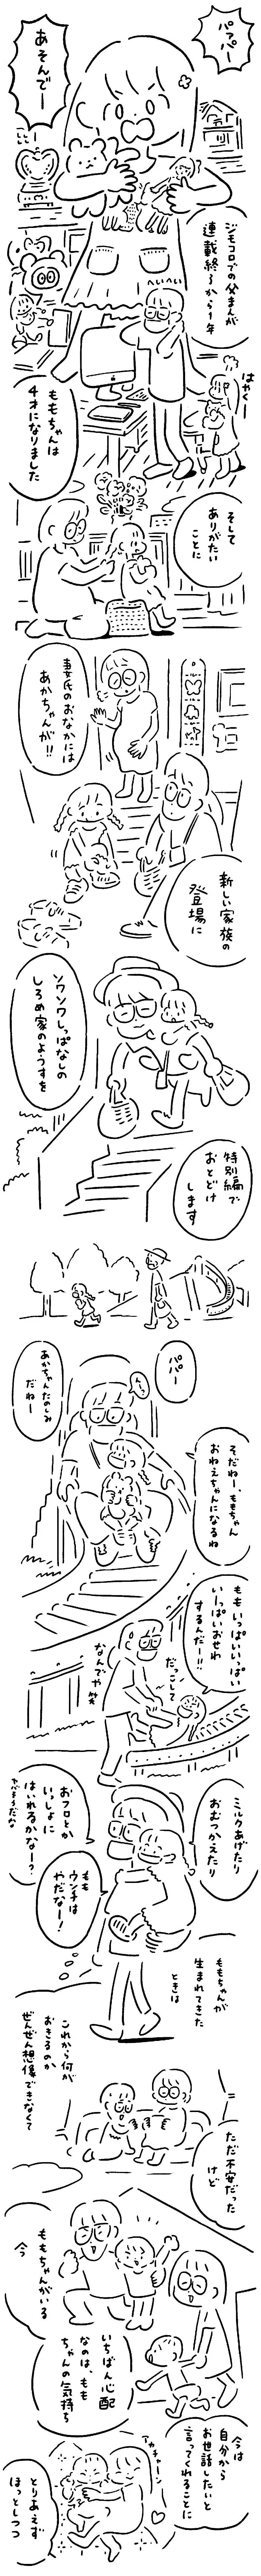 パァパー
あそんでー
ジモコロでの父まんが
連載終了から1年
はやくー
ももちゃんは
4才になりました
そして
ありがたい
ことに
妻氏のおなかには
あかちゃんが!!
新しい家族の
登場に
ソワソワしっぱなしの
しろめ家のようすを
特別編で
おとどけ
します
パパー
あかちゃんたのしみ
だねー
そだねー、ももちゃん
おねえちゃんになるね
ももいっぱいいっぱい
いーっぱいおせわ
するんだー!!
だっこして
なんでや笑
ミルクあげたり
おむつかえたり
おフロとか
いっしょに
はいれるかなー?
もも
ウンチは
やだなー!
ももちゃんが
生まれてきた
ときは
これから何が
おきるのか
ぜんぜん想像できなくて
ただ不安だった
けど
ももちゃんがいる
今
いちばん心配
なのは、もも
ちゃんの気持ち
今は
自分から
お世話したいと
言ってくれることに
アカチャーン
とりあえず
ほっとしつつ